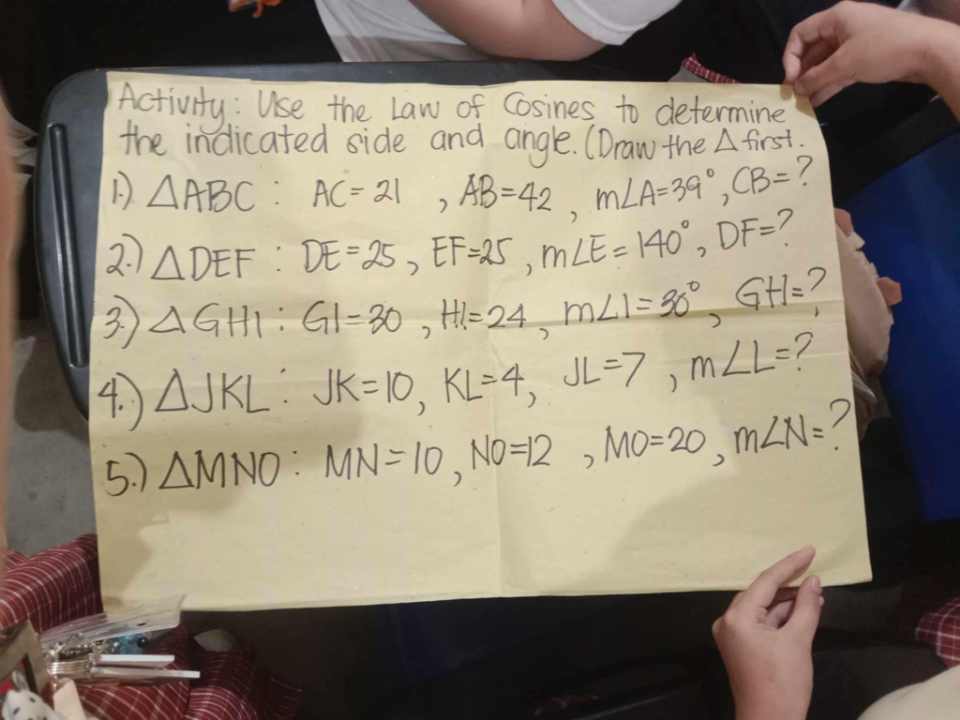 Activity: Use the Law of Cosines to determine
the indicated side and angle. (Draw the Δ first.
1.) ΔABC : AC = 21 , AB=42 , m∠A=39°, CB=?
2.) ΔDEF : DE=25, EF=25, m∠E=140°, DF=?
3.) ΔGHI : GI=30, HI=24, m∠I=30°, GH=?
4.) ΔJKL : JK=10, KL=4, JL=7, m∠L=?
5.) ΔMNO : MN=10, NO=12, MO=20, m∠N=?